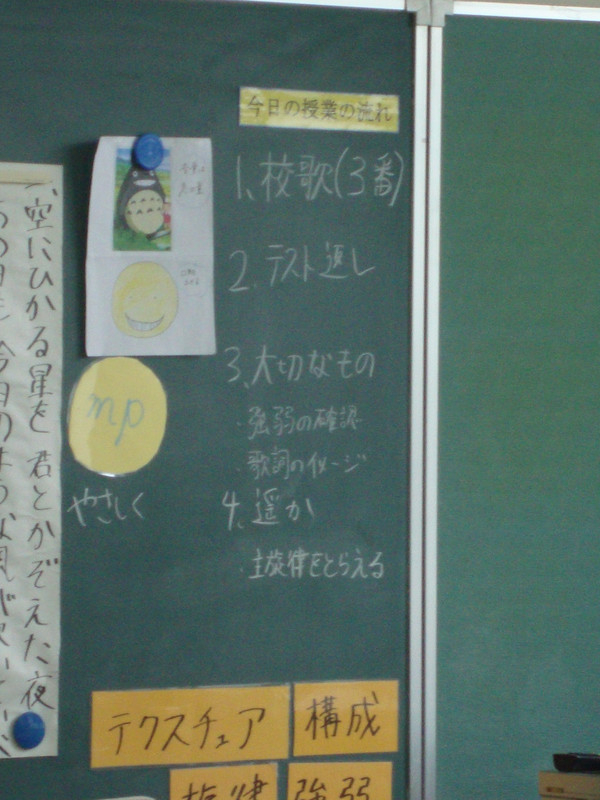 今日の授業の流れ
1、校歌(3番)
2、テスト返し
3、大切なもの
・強弱の確認
・歌詞のイメージ
4、遥か
・主旋律をとらえる
mp
やさしく
一、空にひかる星を 君とかぞえた夜
テクスチュア
構成
旋律
強弱